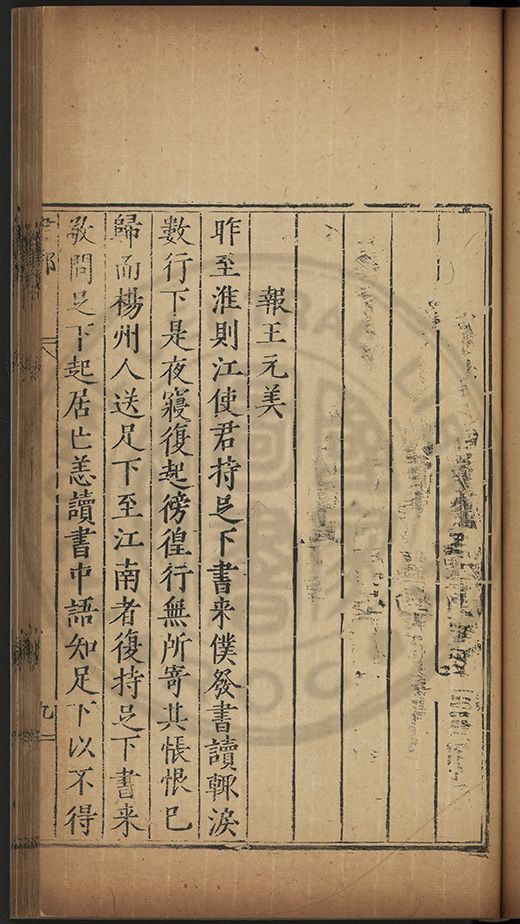 報王元美
昨至淮則江使君持足下書来僕發書讀輙淚
數行下是夜寢復起徬徨行無所寄其悵恨已
歸而楊州人送足下至江南者復持足下書来
敬問足下起居亡恙讀書中語知足下以不得
九